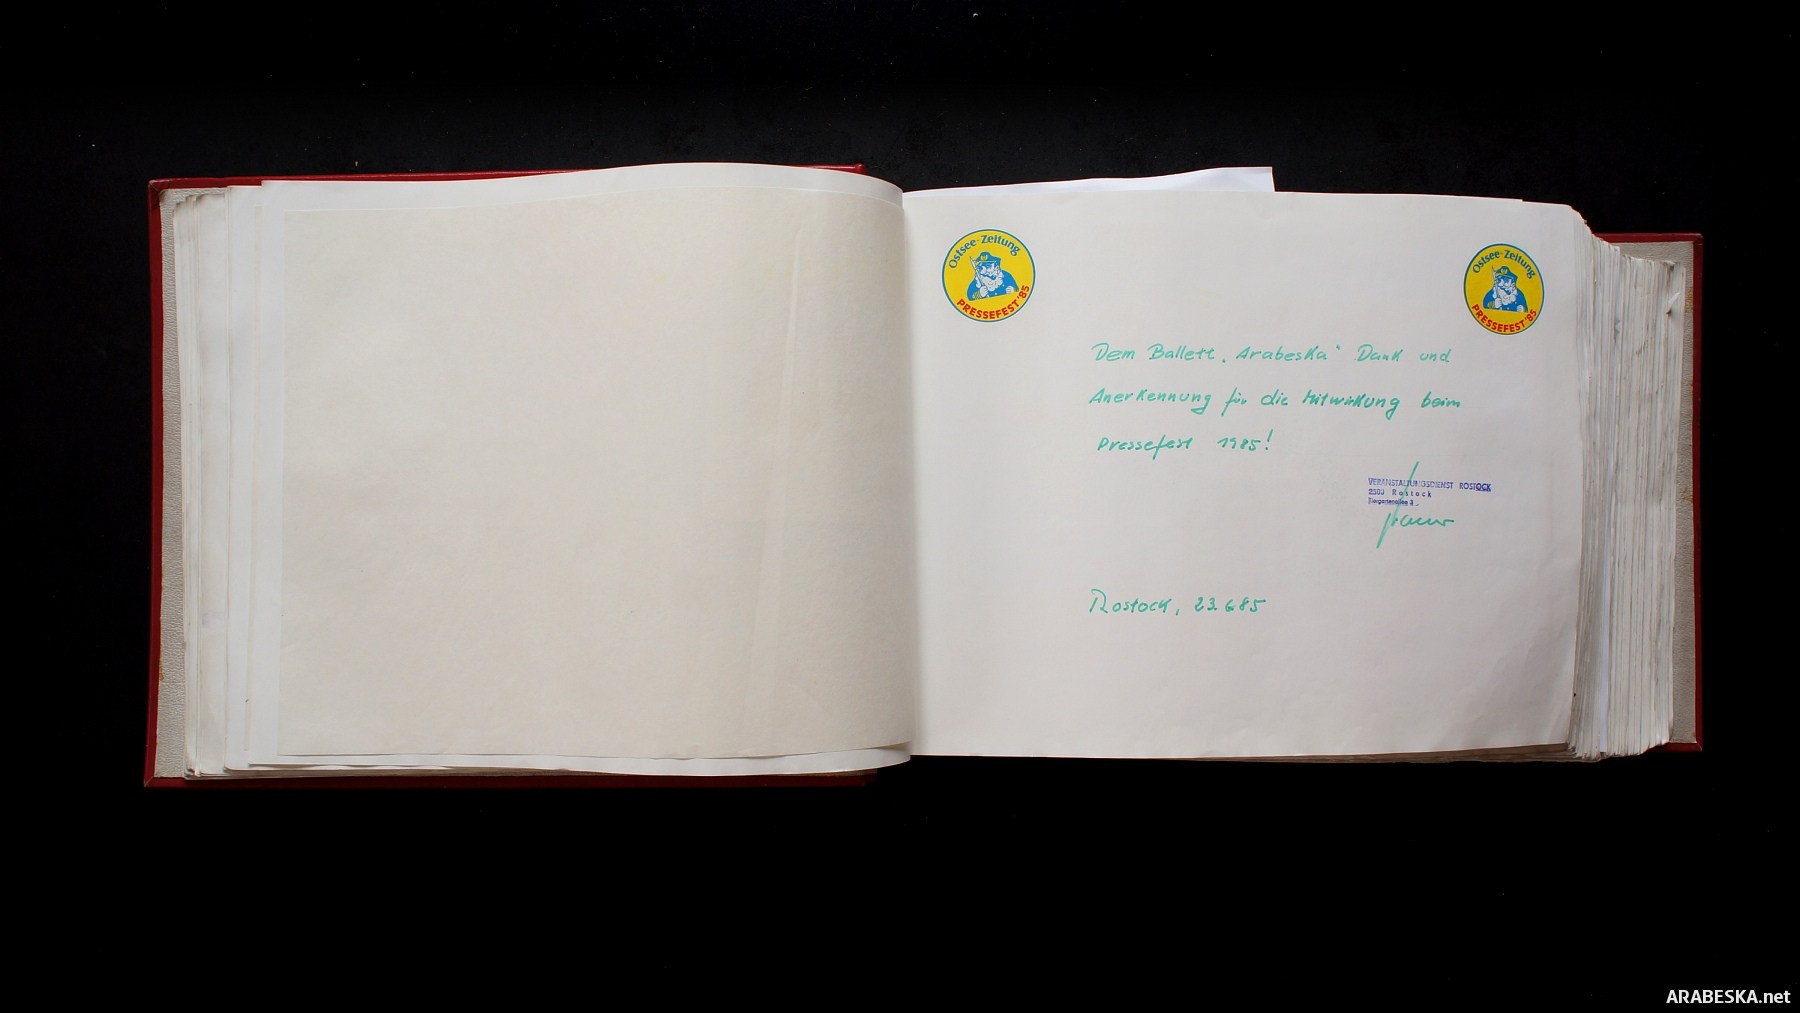 Ostsee-Zeitung
PRESSEFEST '85
Ostsee-Zeitung
PRESSEFEST '85
Dem Ballett „Arabeska“ Dank und
Anerkennung für die Mitwirkung beim
Pressefest 1985!
VERANSTALTUNGSDIENST ROSTOCK
2500 Rostock
Rostock, 23.6.85
ARABESKA.net